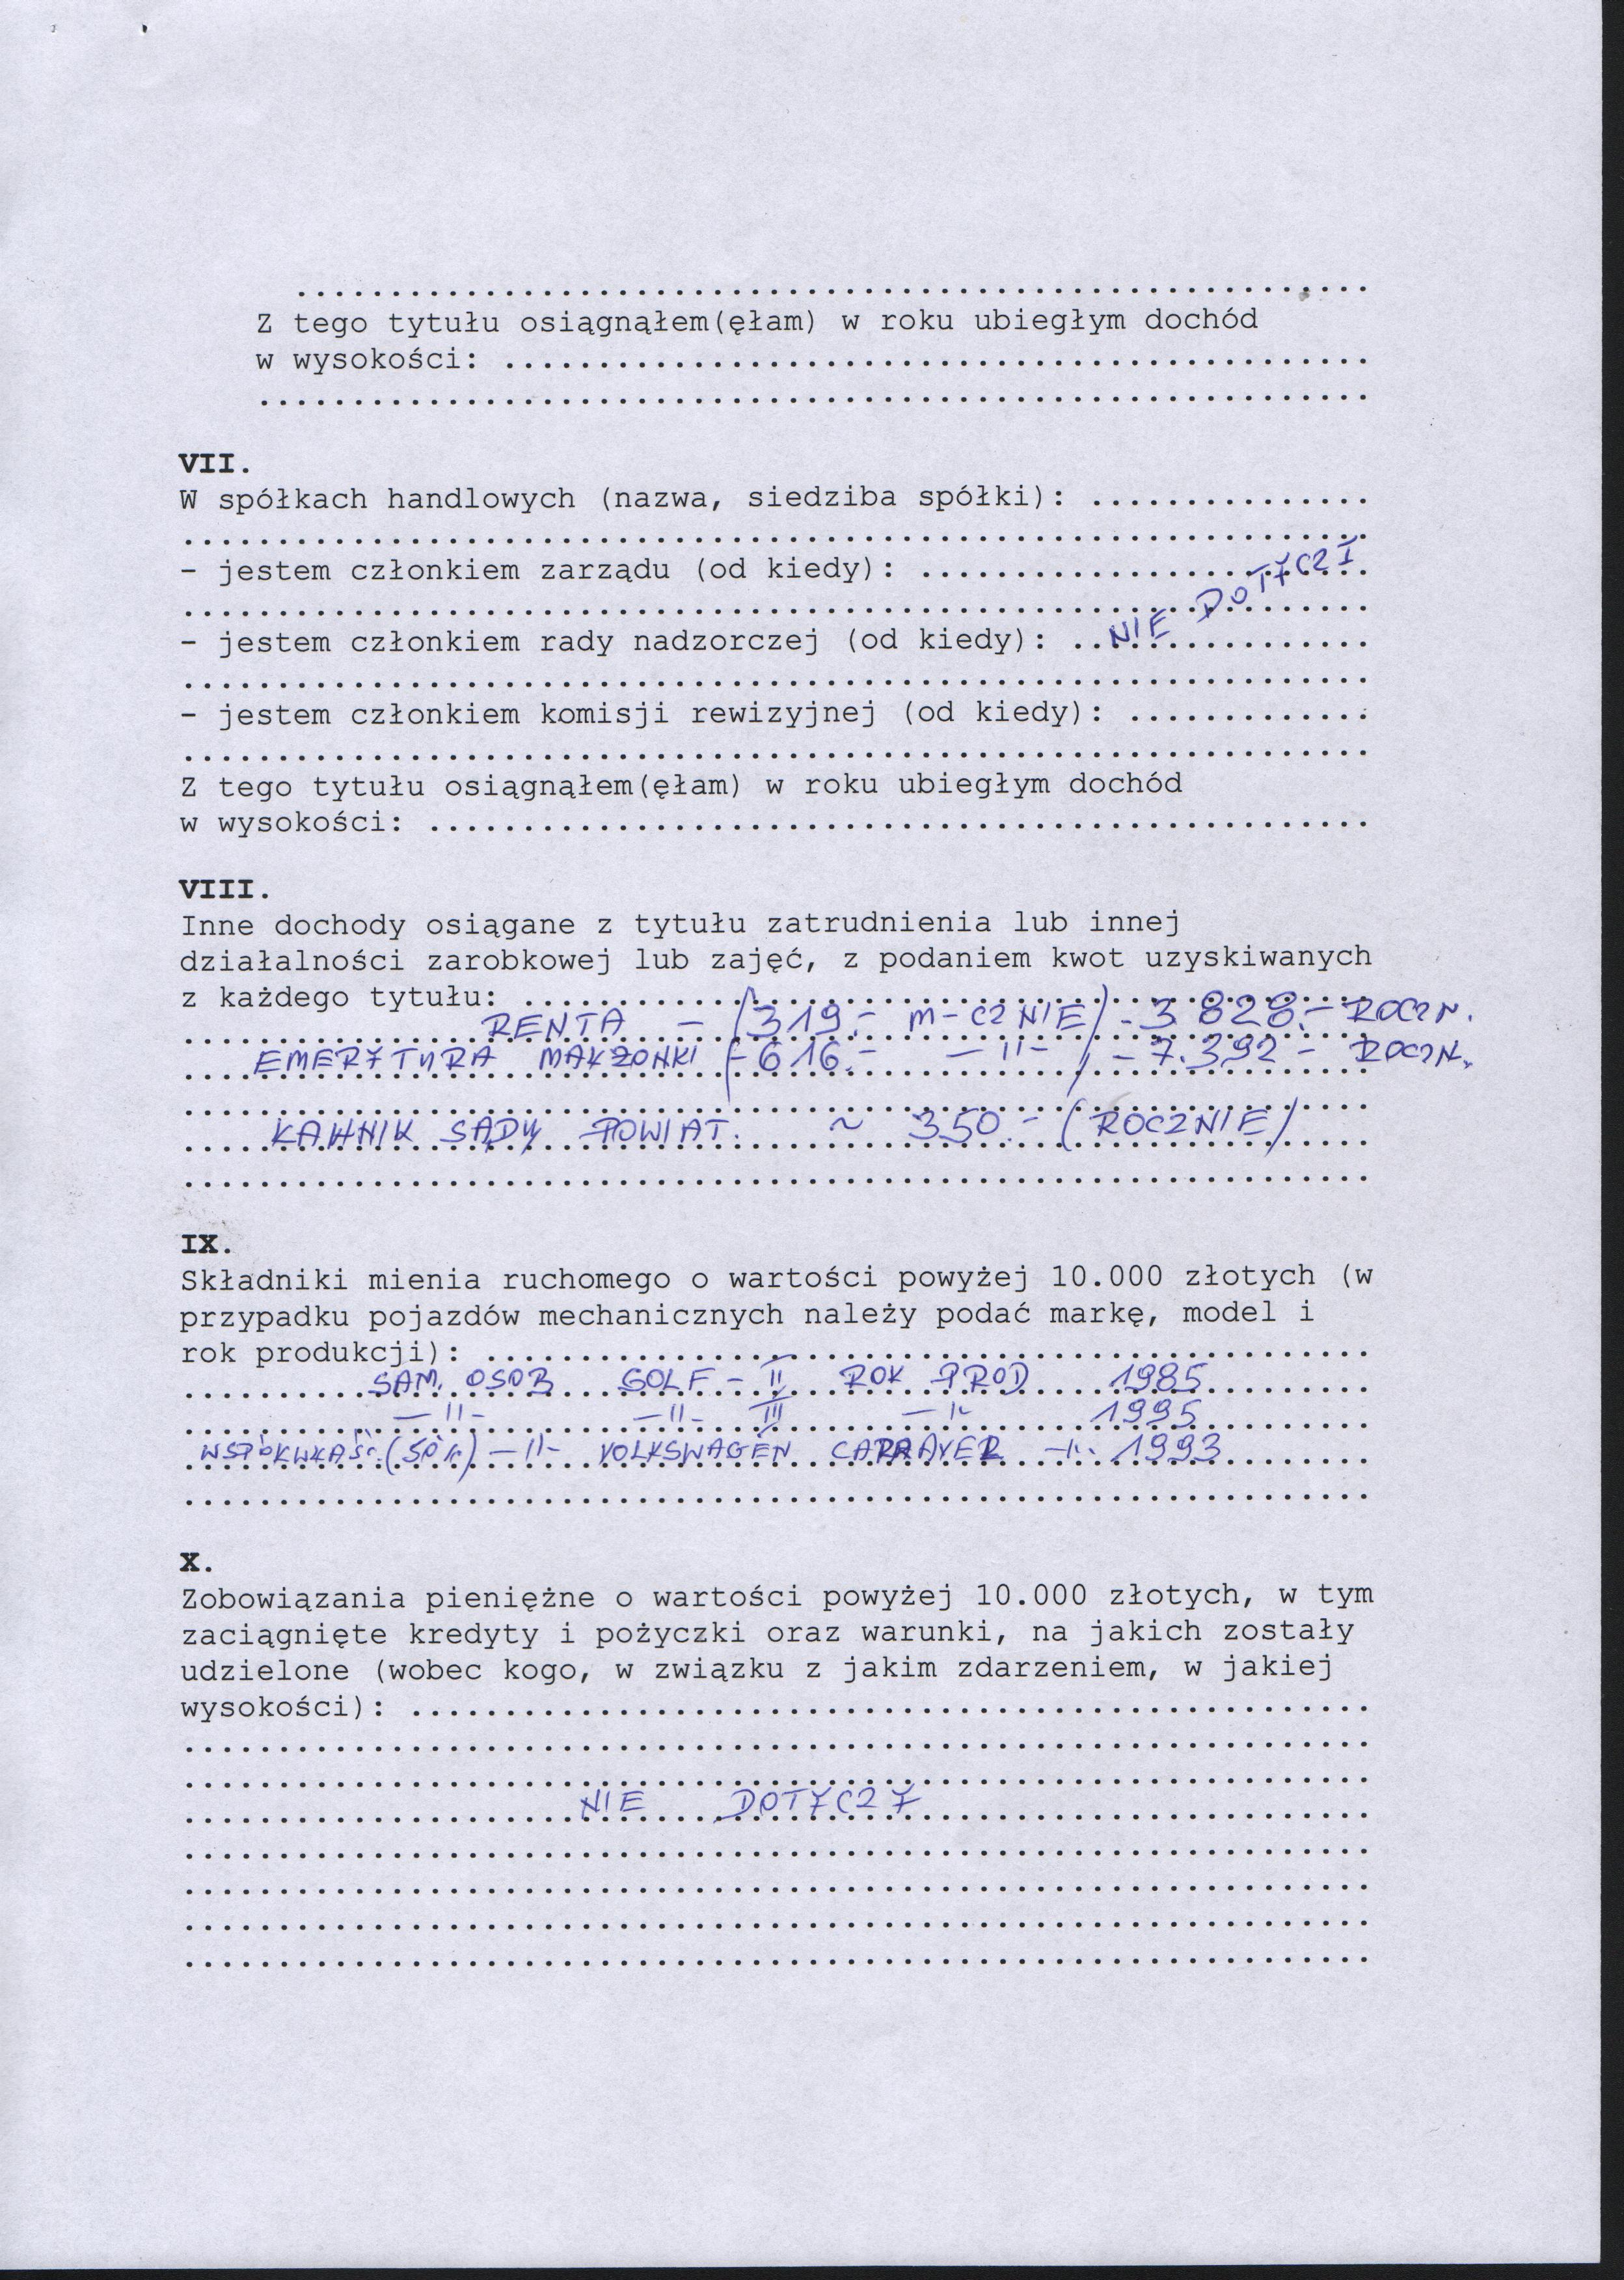 ................................................................
Z tego tytułu osiągnąłem(ęłam) w roku ubiegłym dochód
w wysokości: ..............................................
...........................................................
VII.
W spółkach handlowych (nazwa, siedziba spółki): ...............
...............................................................
- jestem członkiem zarządu (od kiedy): ........................
...............................................................
- jestem członkiem rady nadzorczej (od kiedy): ..NIE DOTYCZY
...............................................................
- jestem członkiem komisji rewizyjnej (od kiedy): .............
...............................................................
Z tego tytułu osiągnąłem(ęłam) w roku ubiegłym dochód
w wysokości: ..................................................
VIII.
Inne dochody osiągane z tytułu zatrudnienia lub innej
działalności zarobkowej lub zajęć, z podaniem kwot uzyskiwanych
z każdego tytułu: .............................................
RENTA - (319.- M-CZNIE) - 3 828.- ROCZN.
EMERYTURA MAŁŻONKI (-616.- -II-) - 7.392 - ROCZN.
...............................................................
ŁAWNIK SĄDU POWIAT. ~ 350.- (ROCZNIE)
...............................................................
IX.
Składniki mienia ruchomego o wartości powyżej 10.000 złotych (w
przypadku pojazdów mechanicznych należy podać markę, model i
rok produkcji): ...............................................
SAM. OSOB GOLF - II ROK PROD 1985
-II- -II- III -II- 1995
(50%) -II- VOLKSWAGEN -II- 1993
...............................................................
X.
Zobowiązania pieniężne o wartości powyżej 10.000 złotych, w tym
zaciągnięte kredyty i pożyczki oraz warunki, na jakich zostały
udzielone (wobec kogo, w związku z jakim zdarzeniem, w jakiej
wysokości): ...................................................
...............................................................
...............................................................
NIE DOTYCZY
...............................................................
...............................................................
...............................................................
...............................................................